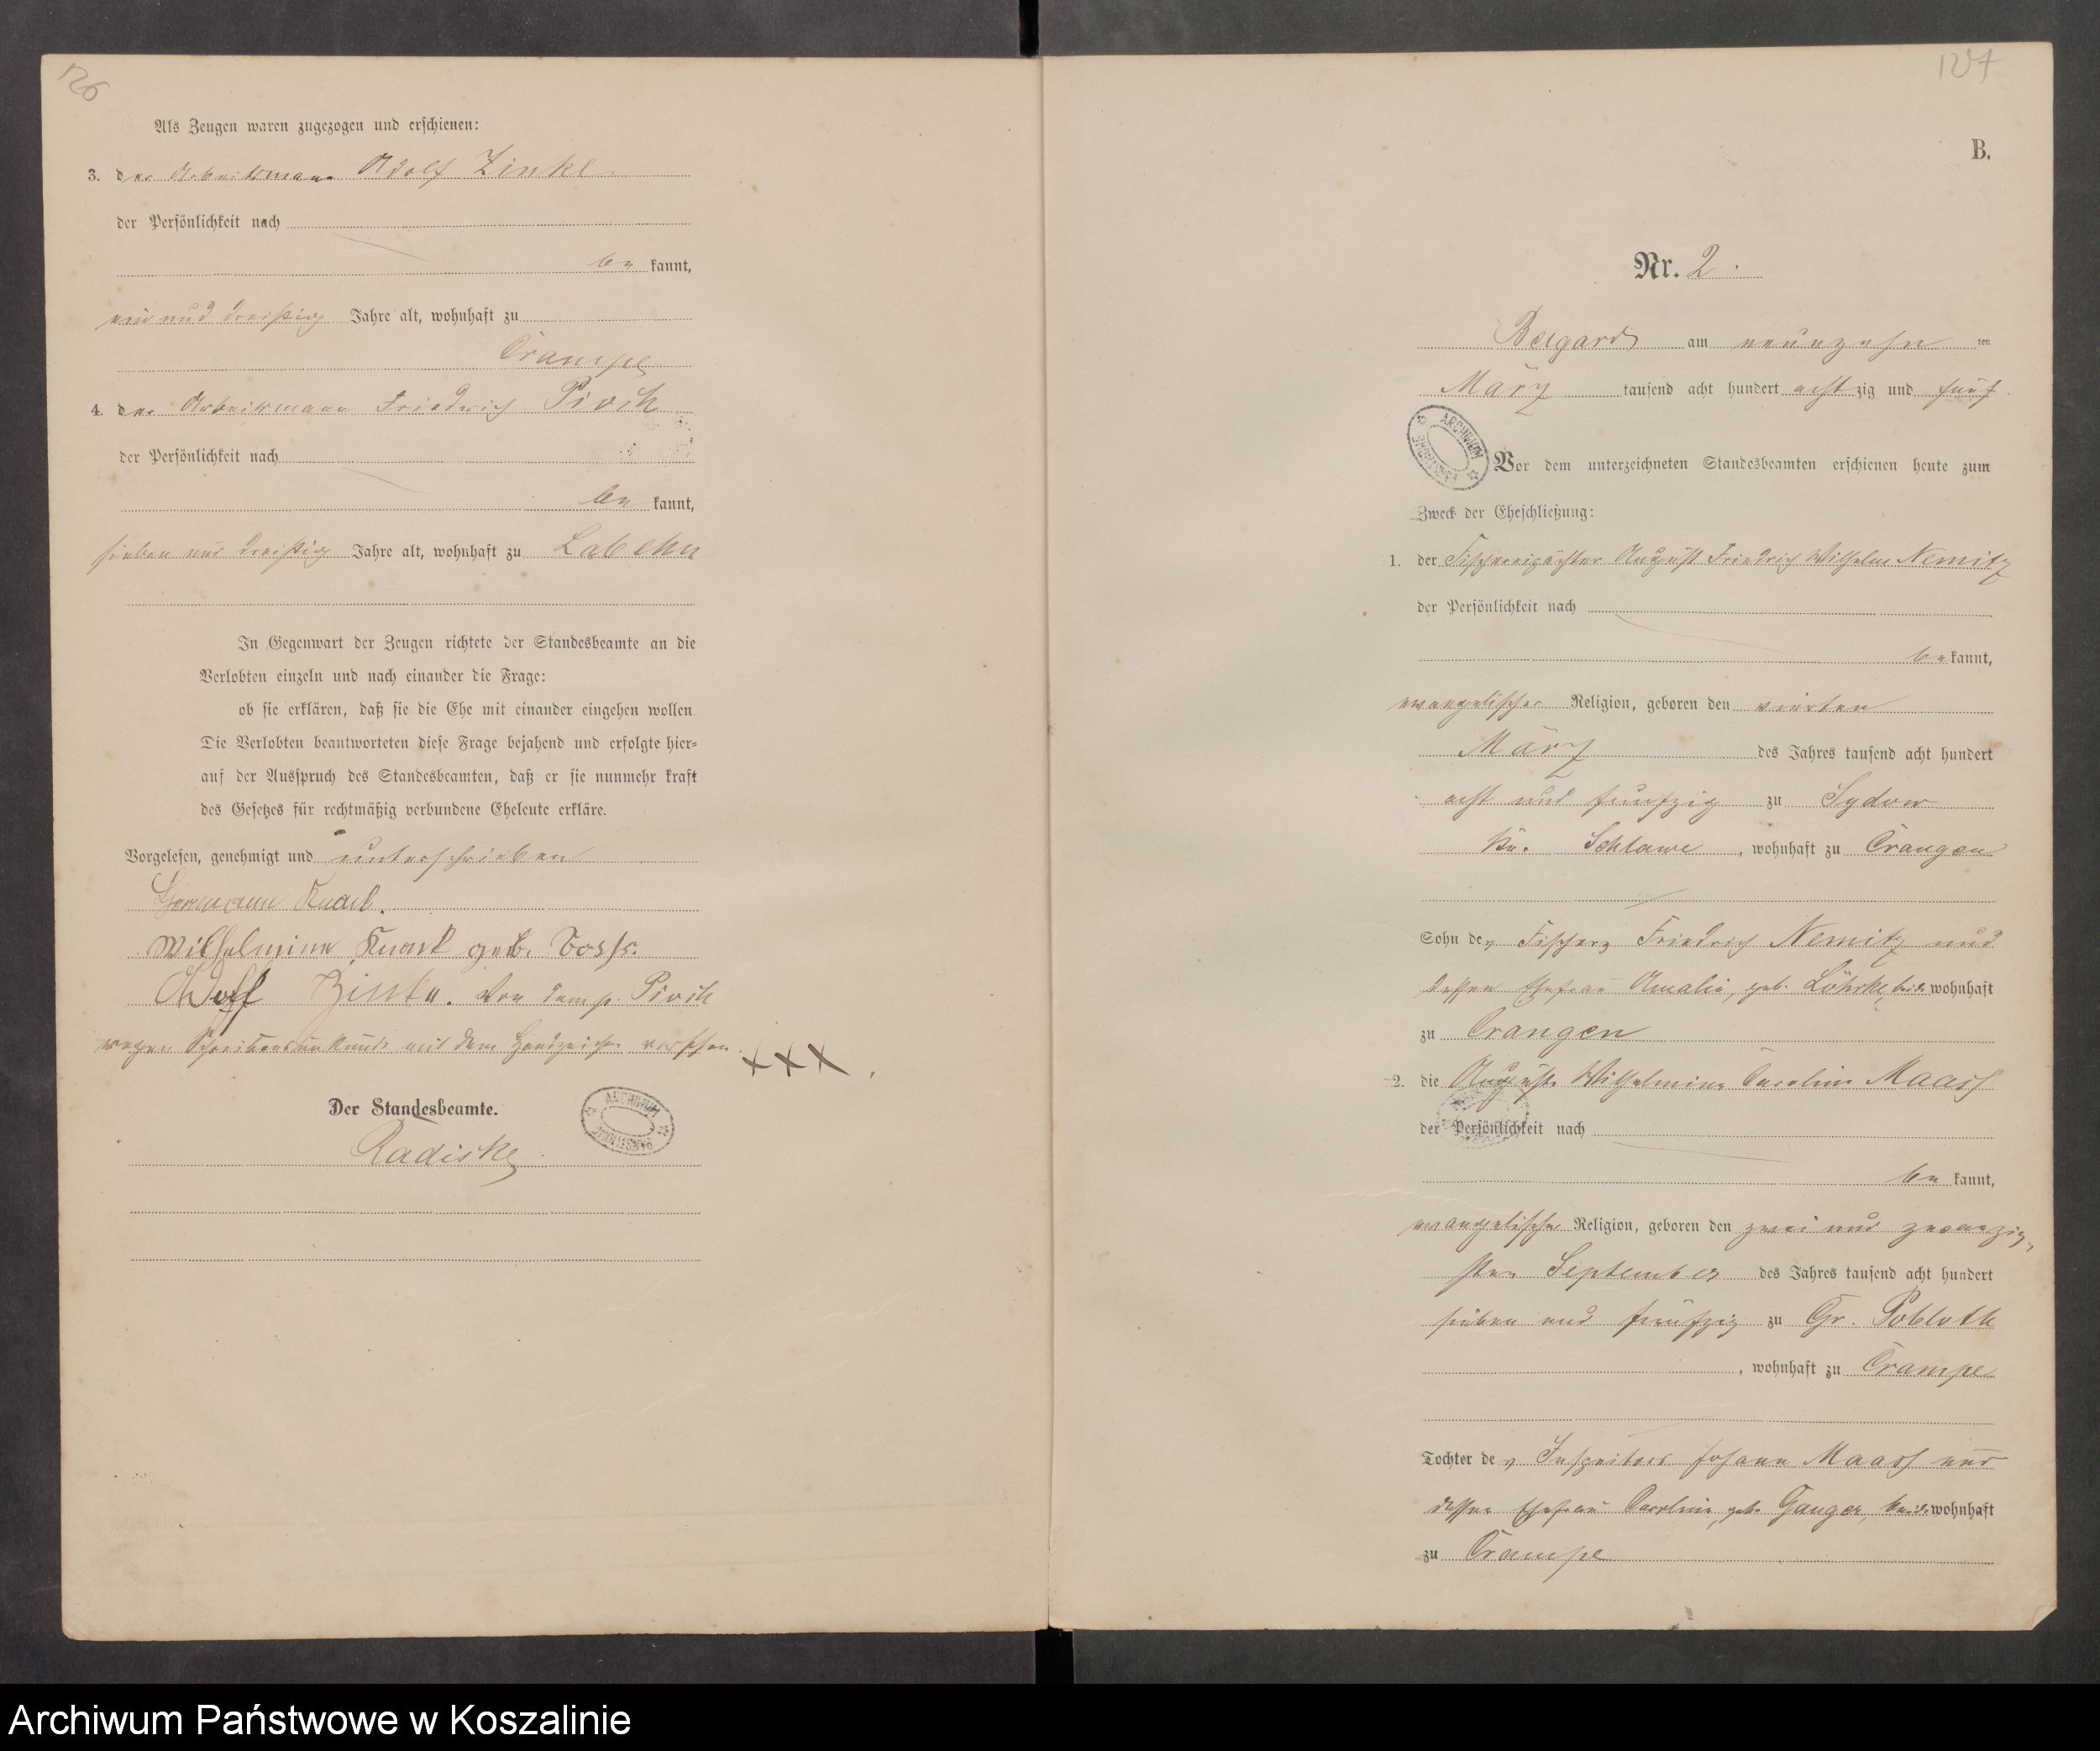 126
Als Zeugen waren zugezogen und erschienen:
3. der Arbeitsmann Adolf Zinke
der Persönlichkeit nach
be kannt,
ein und dreißig Jahre alt, wohnhaft zu
Crampe
4. der Arbeitsmann Friedrich Pioch
der Persönlichkeit nach
be kannt,
sieben und dreißig Jahre alt, wohnhaft zu Labehn
In Gegenwart der Zeugen richtete der Standesbeamte an die
Verlobten einzeln und nach einander die Frage:
ob sie erklären, daß sie die Ehe mit einander eingehen wollen
Die Verlobten beantworteten diese Frage bejahend und erfolgte hier-
auf der Ausspruch des Standesbeamten, daß er sie nunmehr kraft
des Gesetzes für rechtmäßig verbundene Eheleute erkläre.
Vorgelesen, genehmigt und unterschrieben
Hermann
Wilhelmine geb. Voss.
Adolf Zinke. Von dem p. Pioch
wegen Schreibensunkunde mit dem Handzeichen versehen.
XXX
Der Standesbeamte.
ARCHIWUM PAŃSTWOWE
Radiske
127
B.
Nr. 2.
Belgard am neunzehn ten
März tausend acht hundert acht zig und fünf.
ARCHIWUM PAŃSTWOWE
Vor dem unterzeichneten Standesbeamten erschienen heute zum
Zweck der Eheschließung:
1. der Fischereipächter August Friedrich Wilhelm Nemitz
der Persönlichkeit nach
be kannt,
evangelischer Religion, geboren den vierten
März des Jahres tausend acht hundert
acht und fünfzig zu Sydow
Kr. Schlawe, wohnhaft zu Crangen
Sohn des Fischers Friedrich Nemitz und
dessen Ehefrau Amalie, geb. Löhrke, beide wohnhaft
zu Crangen
2. die Auguste Wilhelmine Caroline Maass
der Persönlichkeit nach
be kannt,
evangelischer Religion, geboren den zwei und zwanzig-
sten September des Jahres tausend acht hundert
sieben und fünfzig zu Gr. Pobloth
, wohnhaft zu Crampe
Tochter des Inspektors Johann Maass und
dessen Ehefrau Caroline, geb. Ganger, beide wohnhaft
zu Crampe
Archiwum Państwowe w Koszalinie